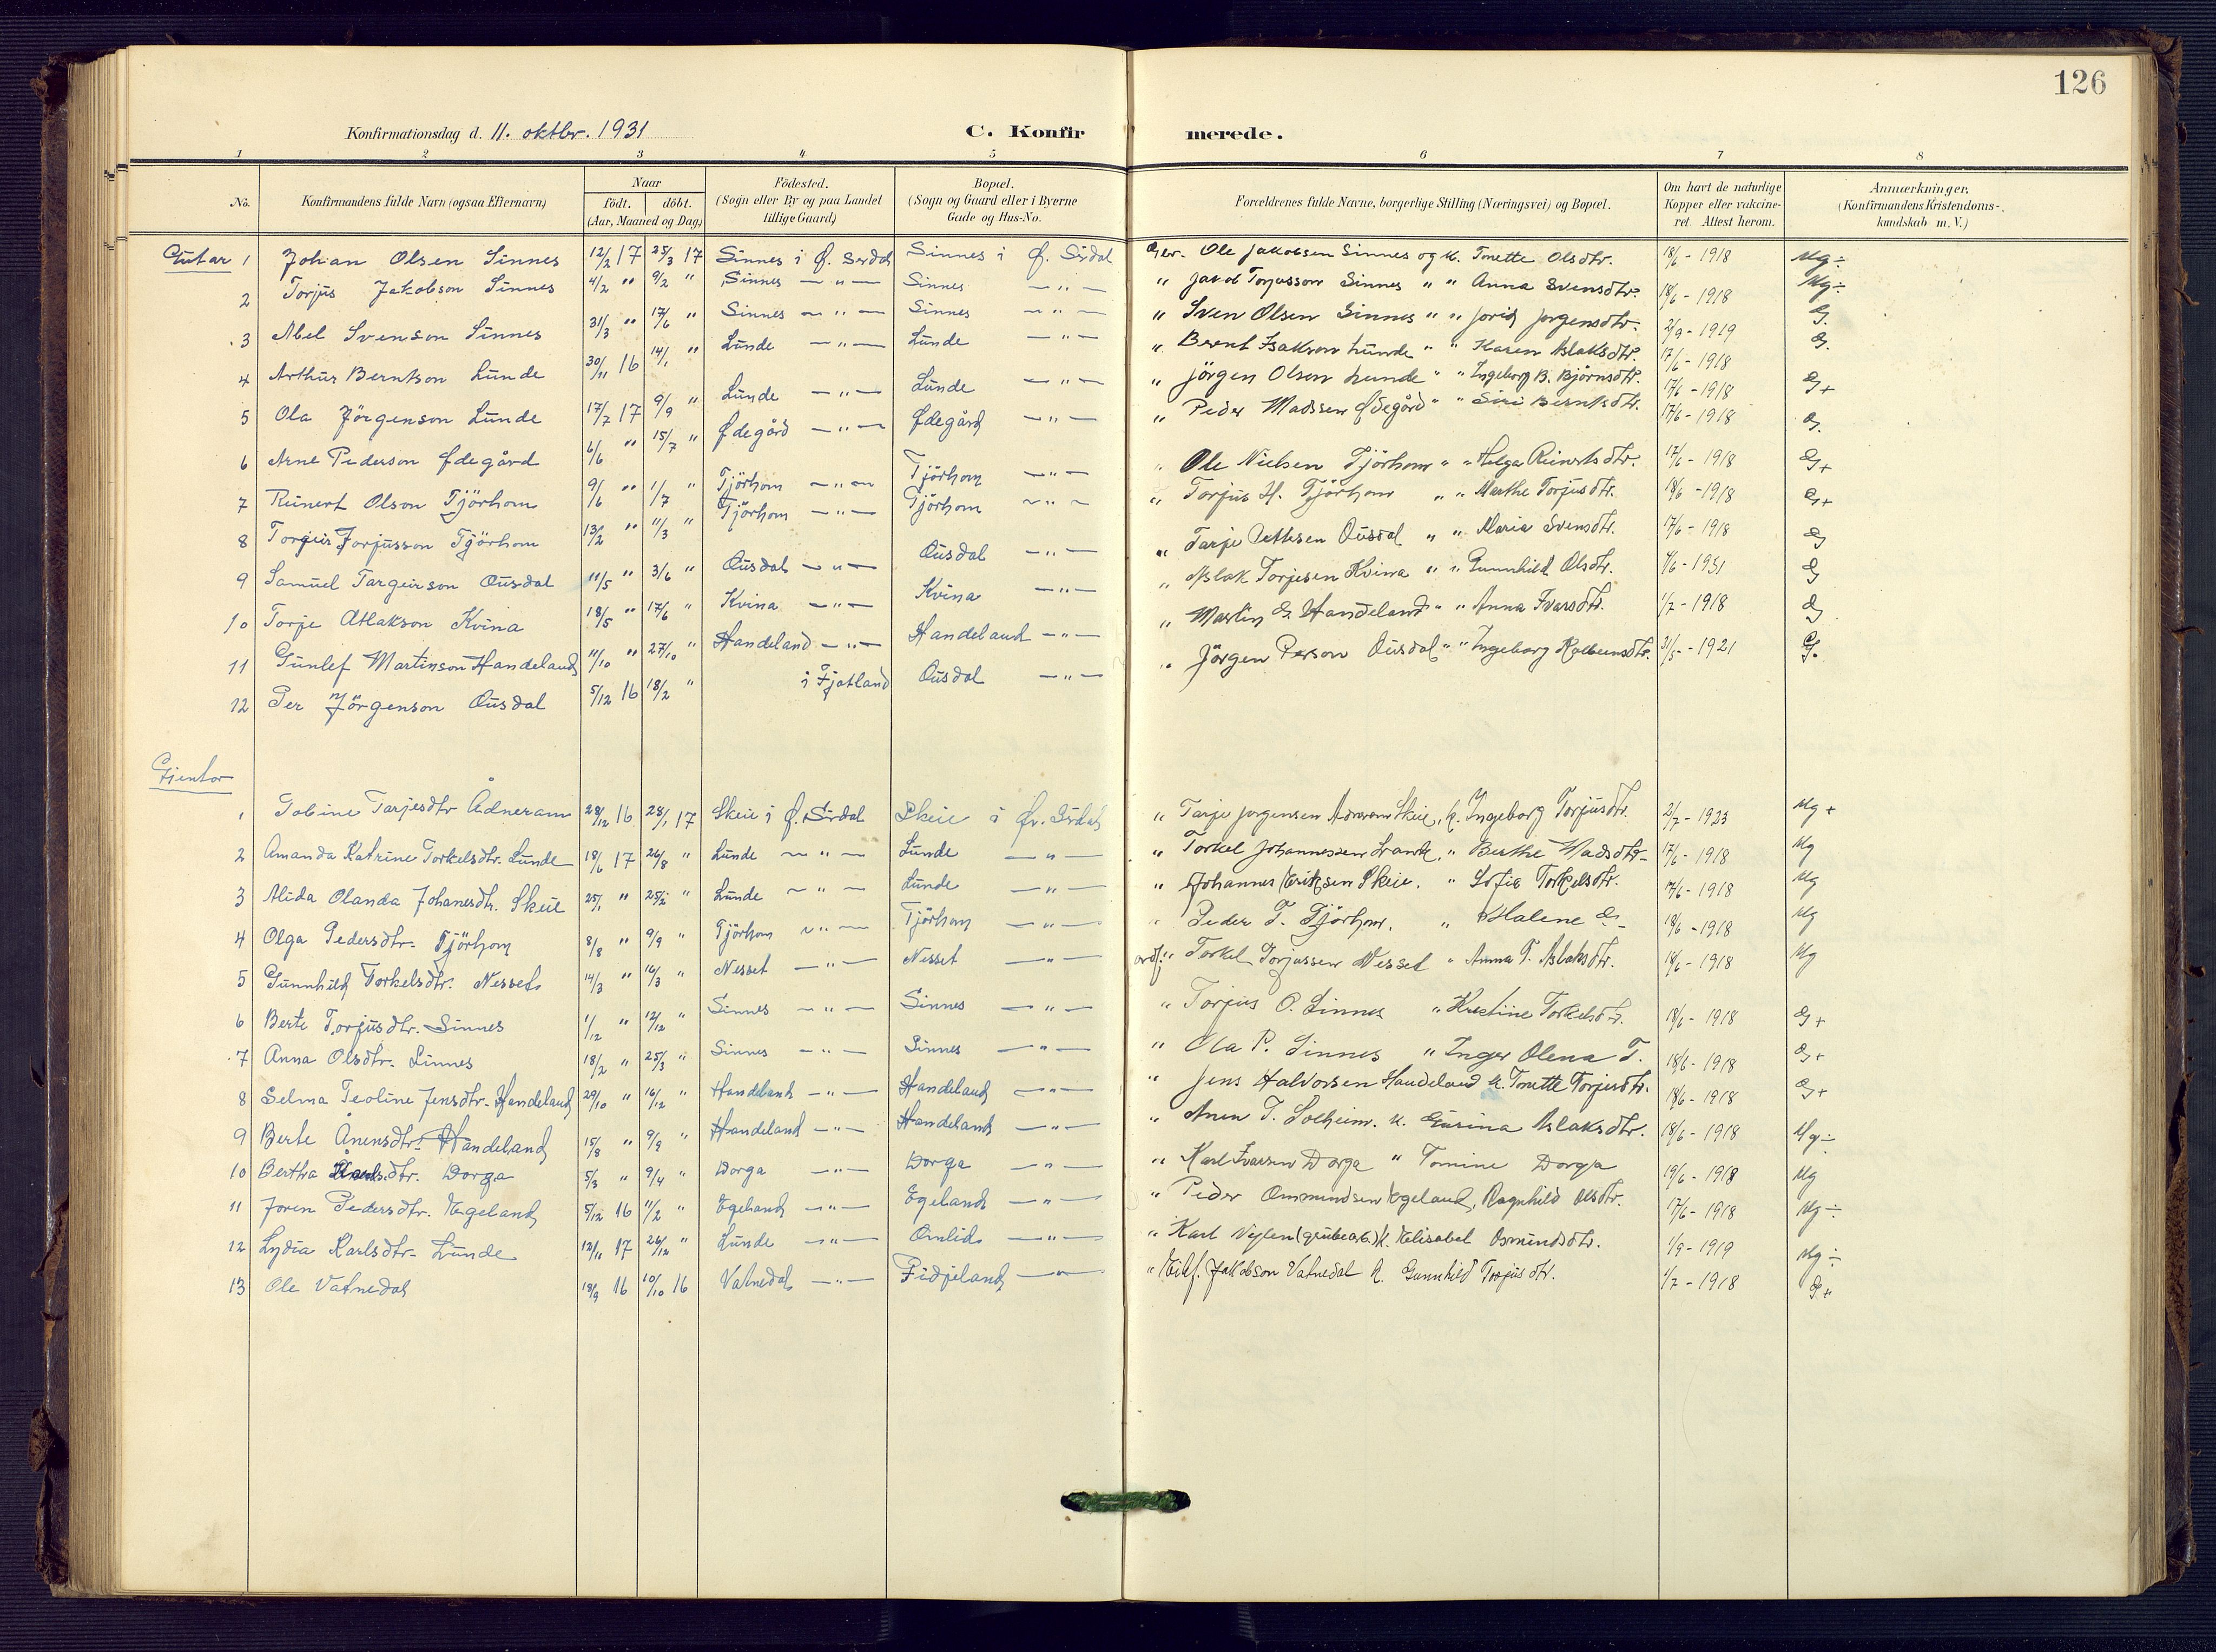 126
Konfirmationsdag d. 11. oktbr. 1931 C. Konfirmerede.
1 2 3 4 5 6 7 8
No. Konfirmandens fulde Navn (ogsaa Efternavn) Naar født. døbt. (Aar, Maaned og Dag) Fødested. (Sogn eller By og paa Landet tillige Gaard) Bopæl. (Sogn og Gaard eller i Byerne Gade og Hus-No. Forældrenes fulde Navne, borgerlige Stilling (Næringsvei) og Bopæl. Om havt de naturlige Kopper eller vakcineret. Attest herom. Anmærkninger. (Konfirmandens Kristendomskundskab m. V.)
Gutar 1 Johan Olsen Sinnes 12/2 17 25/3 17 Sinnes i Ø. Sirdal Sinnes i Ø. Sirdal Ole Jakobsen Sinnes og k. Tonette Olsdtr. 18/6 - 1918 Mg÷
2 Torjus Jakobson Sinnes 4/2 " 9/2 " Sinnes — " — Sinnes — " — " Jakob Torjusson Sinnes " " Anna Svensdtr. 18/6 - 1918 Mg÷
3 Abel Svenson Sinnes 31/3 " 17/6 " Sinnes — " — Sinnes — " — " Sven Olsen Sinnes " " Jorid Jørgensdtr. 2/9 - 1919 G.
4 Arthur Berntson Lunde 30/11 16 14/1 " Lunde — " — Lunde — " — " Bernt Isakson Lunde " " Karen Aslaksdtr. 17/6 - 1918 G.
5 Ola Jörgenson Lunde 17/7 17 9/9 " Lunde — " — Lunde — " — " Jörgen Olsen Lunde " " Ingeborg B. Bjørnsdtr. 17/6 - 1918 G+
6 Arne Pederson Ødegård 6/6 " 15/7 " Ødegård — " — Ødegård — " — " Peder Madssen Ødegård " " Siri Berntsdtr. 17/6 - 1918 G.
7 Reinert Olson Tjörhom 9/6 " 1/7 " Tjörhom — " — Tjörhom — " — " Ole Nielsen Tjörhom " " Helga Reinertsdtr. 17/6 - 1918 G+
8 Torgeir Torjusson Tjörhom 13/2 " 11/3 " Tjörhom — " — Tjörhom — " — " Torjus H. Tjörhom " " Marthe Torjusdtr. 18/6 - 1918 G+
9 Samuel Targeirson Ousdal 11/5 " 3/6 " Ousdal — " — Ousdal — " — " Tarje Ousdal " " Maria Svensdtr. 17/6 - 1918 G
10 Torje Atlakson Kvina 18/5 " 17/6 " Kvina — " — Kvina — " — " Aslak Torjesen Kvina " " Gunnhild Olsdtr. 4/6 - 1931 G
11 Gunlef Martinson Handeland 11/10 " 27/10 " Handeland — " — Handeland — " — " Martin G. Handeland " " Anna Ivarsdtr. 1/7 - 1918 G
12 Per Jörgenson Ousdal 5/12 16 18/2 " i Fjotland Ousdal — " — " Jörgen Person Ousdal " " Ingeborg Kolbeinsdtr. 31/5 - 1921 G.
Gjentor
1 Tobine Tarjesdtr Ådneram 28/12 16 28/1 17 Skeie i Ø. Sirdal Skeie i Øv. Sirdal " Tarje Jørgensen Skeie, k. Ingeborg Torjusdtr. 2/7 - 1923 Mg +
2 Amanda Katrine Torkelsdtr. Lunde 18/6 17 26/8 " Lunde — " — Lunde — " — " Torkel Johannessen " Berthe Madsdtr. 17/6 - 1918 Mg
3 Alida Olanda Johanesdtr. Skeie 25/1 " 25/2 " Lunde — " — Lunde — " — " Johannes Eriksen Skeie. " Sofie Torkelsdtr. 17/6 - 1918 Mg
4 Olga Pedersdtr. Tjörhom 8/8 " 9/9 " Tjörhom — " — Tjörhom — " — " Peder T. Tjörhom. " Malene G. 18/6 - 1918 Mg
5 Gunnhild Torkelsdtr. Nesset 14/3 " 16/3 " Nesset — " — Nesset — " — ordf. " Torkel Torjussen Nesset " Anna T. Aslaksdtr. 18/6 - 1918 Mg
6 Berte Torjusdtr. Sinnes 1/12 " 12/12 " Sinnes — " — Sinnes — " — " Torjus O. Sinnes " Kristine Torkelsdtr. 18/6 - 1918 G+
7 Anna Olsdtr. Sinnes 18/2 " 25/3 " Sinnes — " — Sinnes — " — " Ola P. Sinnes " Inger Olena T. 18/6 - 1918 G+
8 Selma Teoline Jensdtr. Handeland 29/10 " 16/12 " Handeland — " — Handeland — " — " Jens Halvorsen Handeland k. Tonette Torjusdtr. 18/6 - 1918 G+
9 Berte Ånensdtr. Handeland 15/8 " 9/9 " Handeland — " — Handeland — " — " Anen T. Solheim. k. Gurina Aslaksdtr. 18/6 - 1918 Mg÷
10 Bertha Karlsdtr. Dorga 5/3 " 9/4 " Dorga — " — Dorga — " — " Karl Ivarsen Dorga " Tomine Dorga 19/6 - 1918 Mg
11 Joren Pedersdtr. Egeland 5/12 16 11/2 " Egeland — " — Egeland — " — " Peder Ommundsen Egeland, Ragnhild Olsdtr. 17/6 - 1918 Mg÷
12 Lydia Karlsdtr. Lunde 12/11 17 26/12 " Lunde — " — Omlid — " — " Karl (grubearb.) k. Elisabet Osmundsdtr. 1/9 - 1919 Mg÷
13 Ole Vatnedal 19/9 16 10/10 16 Vatnedal — " — Fidjeland — " — " Jakobson Vatnedal k. Gunnhild Torjusdtr. 1/7 - 1918 G+